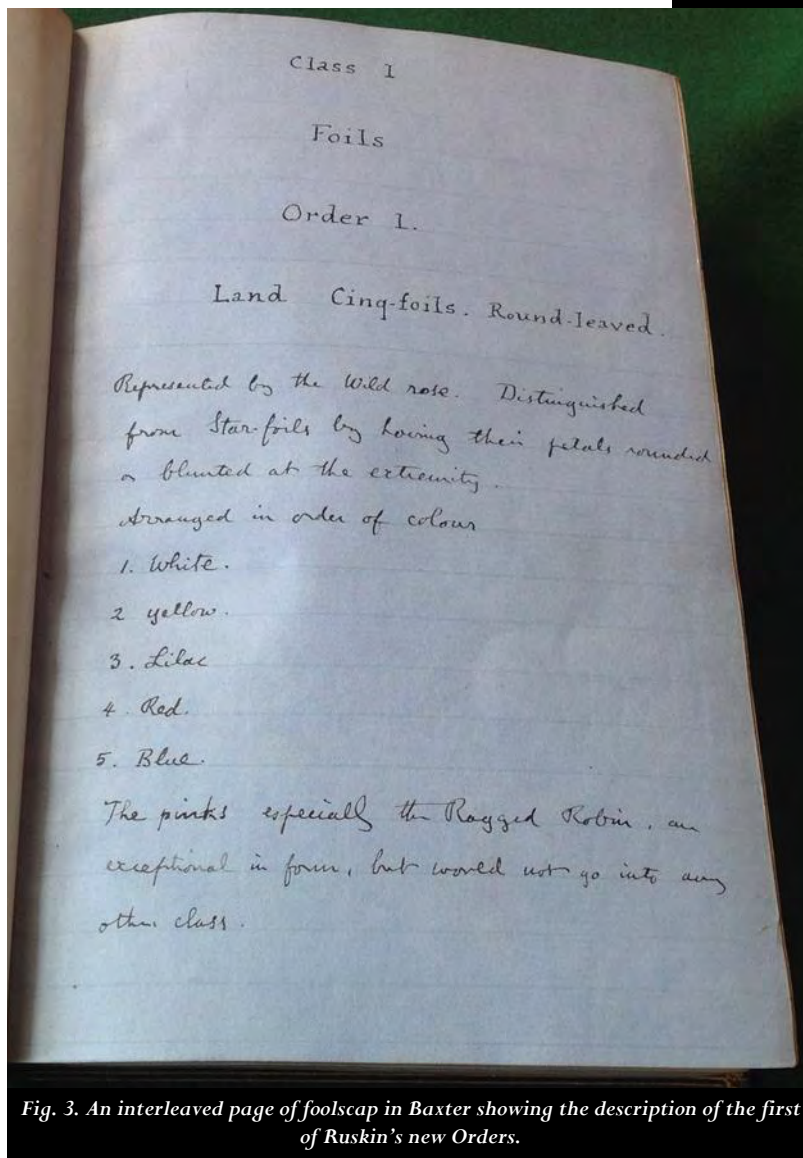 Class 1
Foils
Order 1.
Land Cinq-foils. Round-leaved.
Represented by the Wild rose. Distinguished
from Star-foils by having their petals rounded
or blunted at the extremity.
Arranged in order of colour
1. White.
2 yellow.
3. Lilac
4. Red.
5. Blue.
The pinks especially the Ragged Robin, are
exceptional in form, but would not go into any
other class.
Fig. 3. An interleaved page of foolscap in Baxter showing the description of the first
of Ruskin's new Orders.